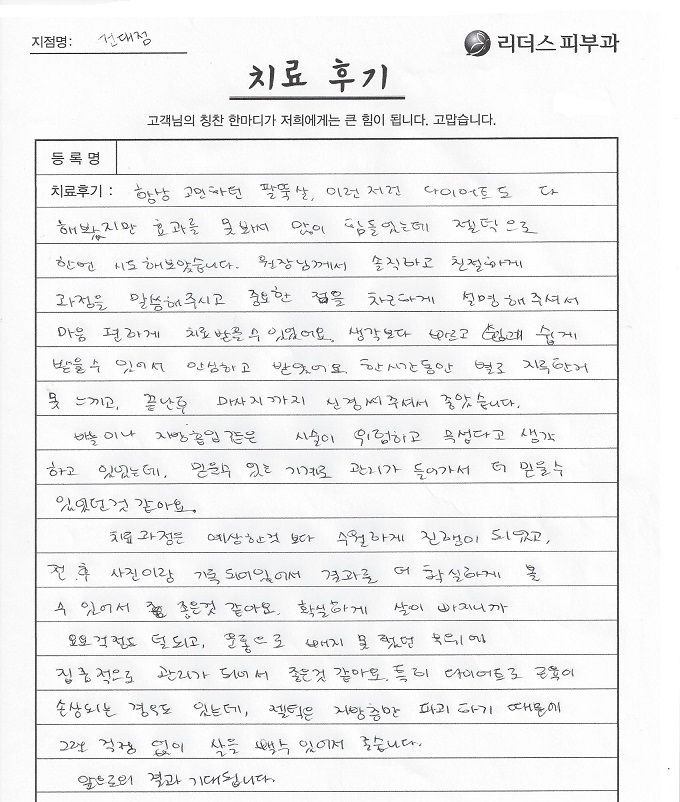 지점명: 건대점
리더스 피부과
치료 후기
고객님의 칭찬 한마디가 저희에게는 큰 힘이 됩니다. 고맙습니다.
등록명
치료후기 : 항상 고민하던 팔뚝살, 이런저런 다이어트도 다
해봤지만 효과를 못봐서 많이 힘들었는데 젤틱으로
한번 시도해보았습니다. 원장님께서 솔직하고 친절하게
과정을 말씀해주시고 중요한 점을 차근하게 설명해주셔서
마음 편하게 치료받을수있었어요. 생각보다 빠르고 쉽게
받을수 있어서 안심하고 받았어요. 한시간동안 별로 지루한거
못 느끼고, 끝난후 마사지까지 신경써주셔서 좋았습니다.
바늘이나 지방흡입같은 시술이 위험하고 무섭다고 생각
하고 있었는데, 믿을수 있는 기계로 관리가 들어가서 더 믿을수
있었던것 같아요.
치료과정은 예상한것 보다 수월하게 진행이 되었고,
전.후 사진이랑 기록되어있어서 결과를 더 확실하게 볼
수 있어서 좋은것 같아요. 확실하게 살이 빠지니까
요요걱정도 덜되고, 운동으로 빼지 못했던 부위에
집중적으로 관리가 되어서 좋은것 같아요. 특히 다이어트로 근육이
손상되는 경우도 있는데, 젤틱은 지방층만 파괴하기 때문에
그런 걱정 없이 살을 뺄수 있어서 좋습니다.
앞으로의 결과 기대됩니다.